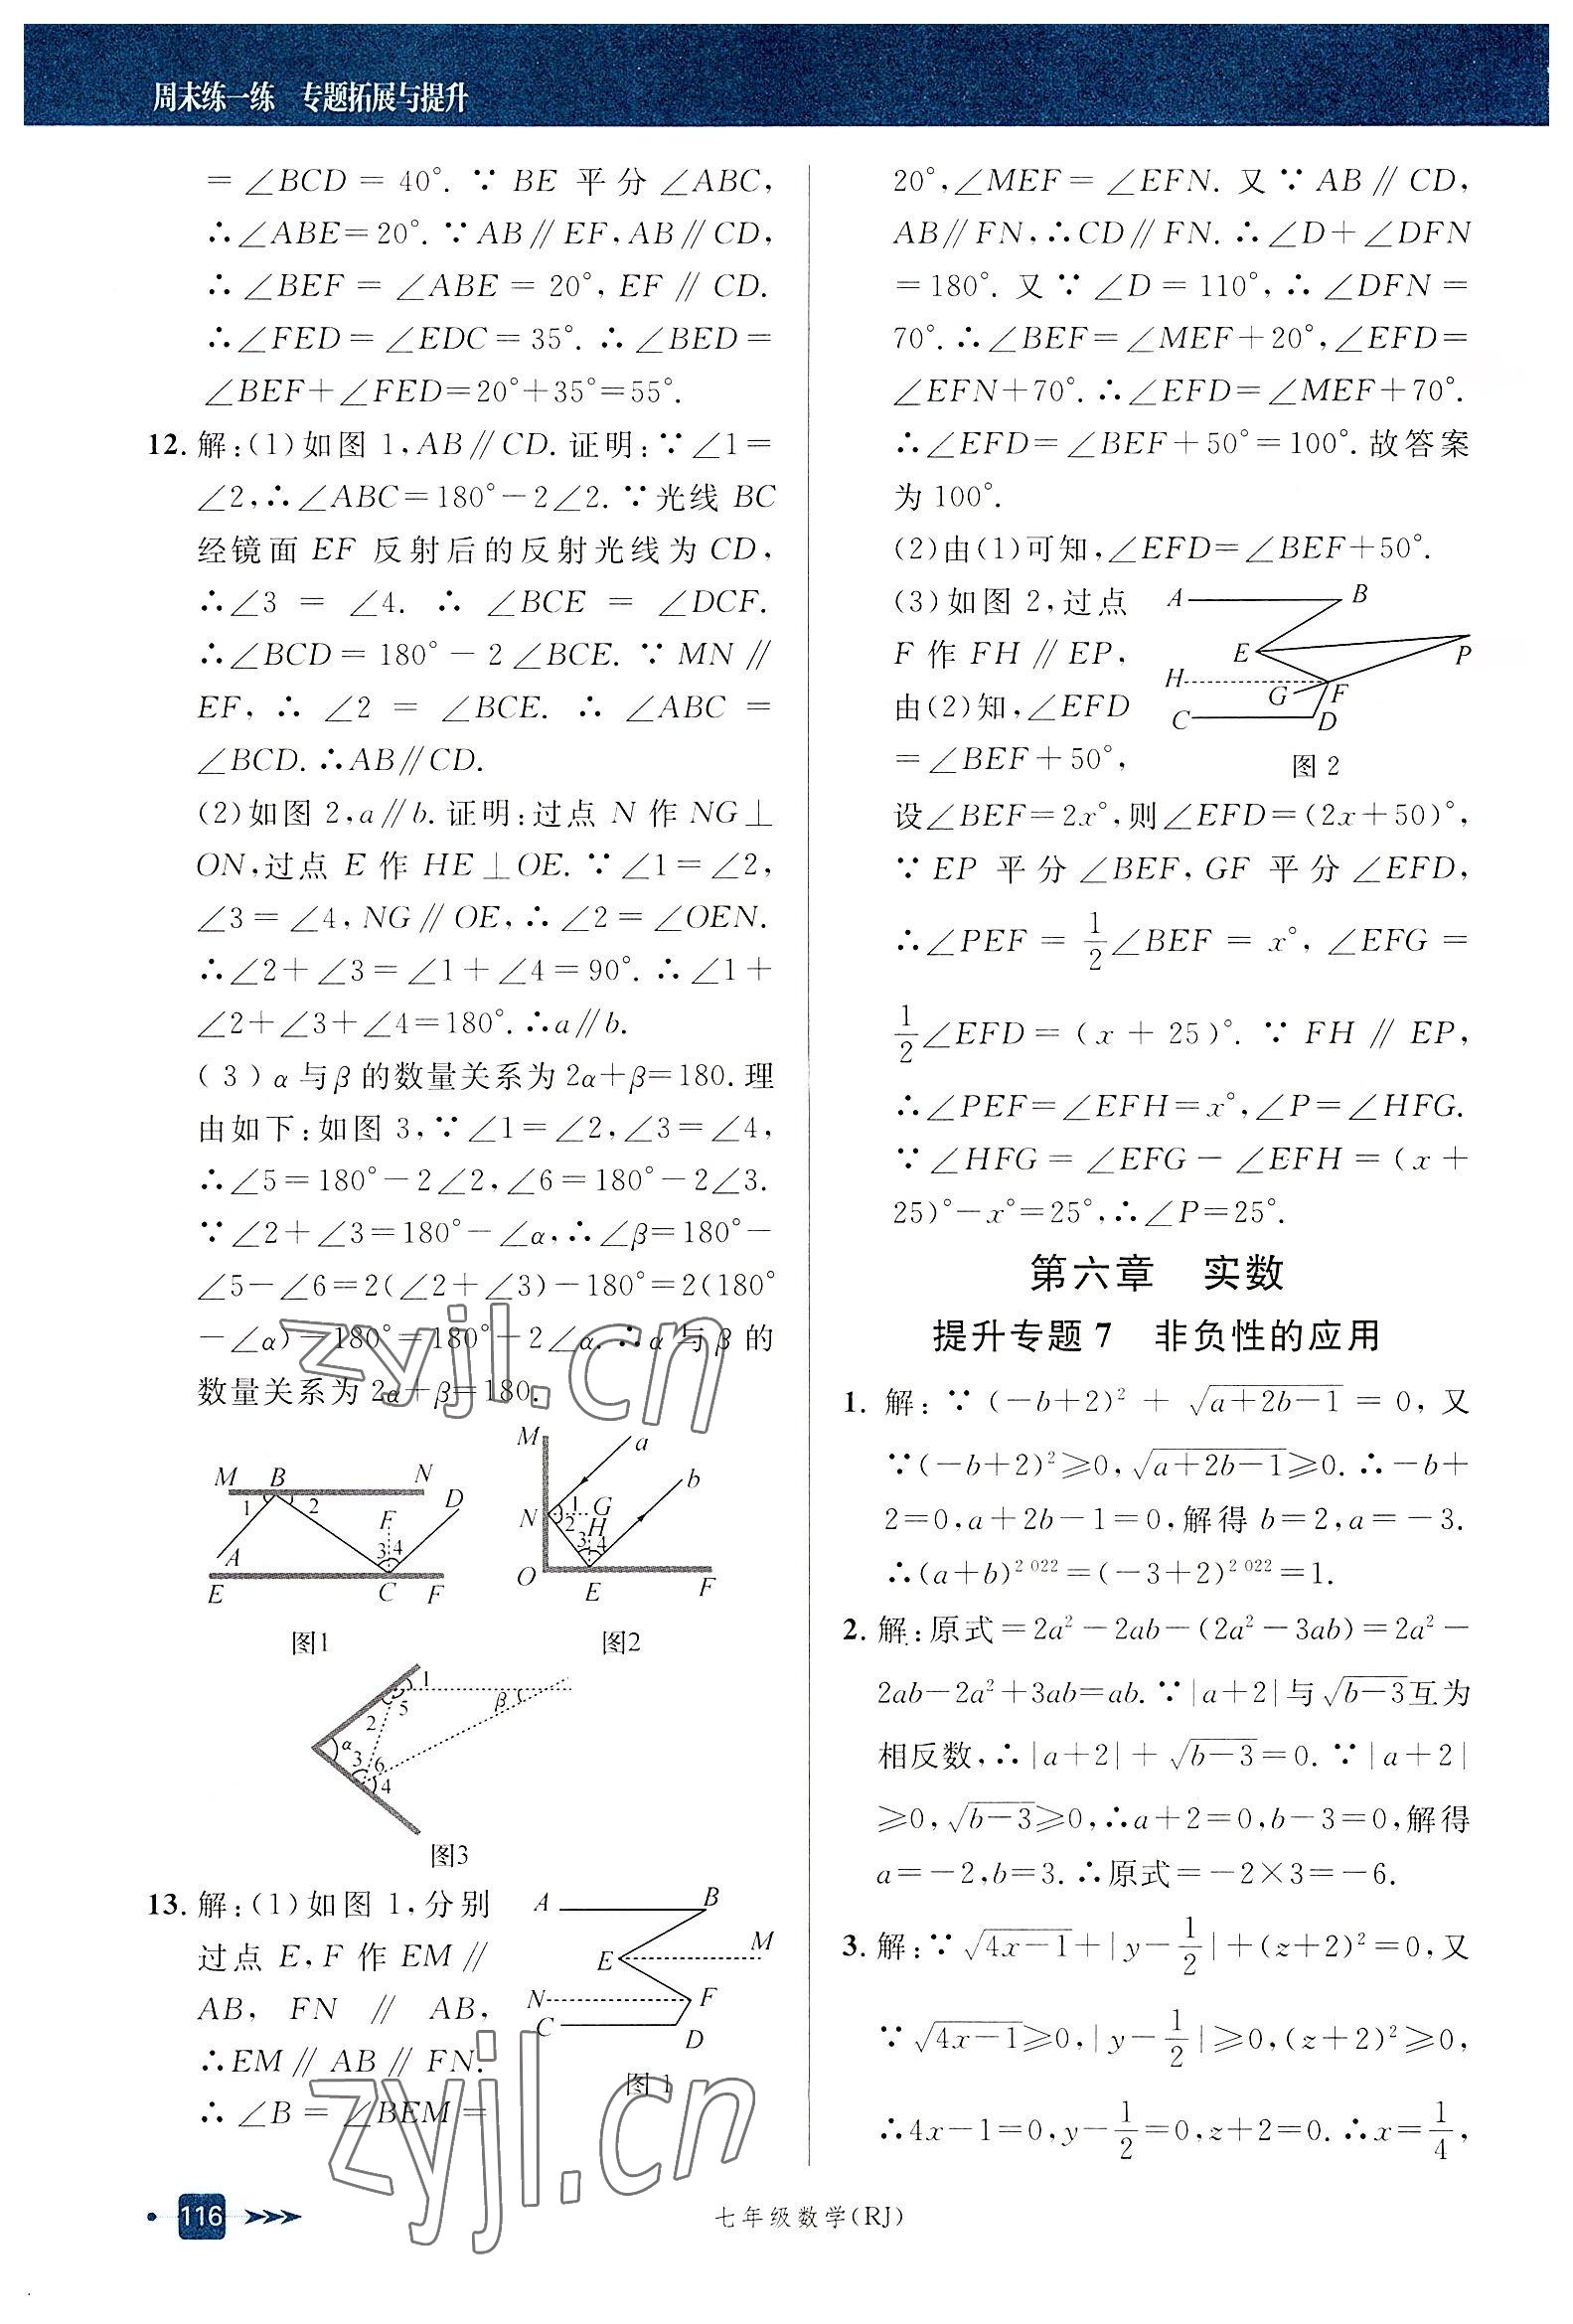 周末练一练　专题拓展与提升
=∠BCD=40°. ∵BE 平分∠ABC,
∴∠ABE=20°. ∵AB∥EF,AB∥CD,
∴∠BEF=∠ABE=20°,EF∥CD.
∴∠FED=∠EDC=35°. ∴∠BED=
∠BEF+∠FED=20°+35°=55°.
12. 解:(1)如图 1,AB∥CD. 证明:∵∠1=
∠2,∴∠ABC=180°-2∠2. ∵光线 BC
经镜面 EF 反射后的反射光线为 CD,
∴∠3=∠4. ∴∠BCE=∠DCF.
∴∠BCD=180°-2∠BCE. ∵MN∥
EF,∴∠2=∠BCE. ∴∠ABC=
∠BCD. ∴AB∥CD.
(2)如图 2,a∥b. 证明:过点 N 作 NG⊥
ON,过点 E 作 HE⊥OE. ∵∠1=∠2,
∠3=∠4,NG∥OE,∴∠2=∠OEN.
∴∠2+∠3=∠1+∠4=90°. ∴∠1+
∠2+∠3+∠4=180°. ∴a∥b.
(3)α与β的数量关系为2α+β=180. 理
由如下:如图 3,∵∠1=∠2,∠3=∠4,
∴∠5=180°-2∠2,∠6=180°-2∠3.
∵∠2+∠3=180°-∠α,∴∠β=180°-
∠5-∠6=2(∠2+∠3)-180°=2(180°
-∠α)-180°=180°-2∠α. ∴α与β的
数量关系为 2α+β=180.
M B N D
1 2 F 3 4
A
E C F
图1
M a b
N 1 2 G H
3 4
O E F
图2
1 2 5 β
α 3 6 4
图3
13. 解:(1)如图 1,分别
过点 E,F 作 EM∥
AB,FN∥AB,
∴EM∥AB∥FN.
∴∠B=∠BEM=
A B
E M
N F
C D
图 1
20°,∠MEF=∠EFN. 又∵AB∥CD,
AB∥FN,∴CD∥FN. ∴∠D+∠DFN
=180°. 又∵∠D=110°,∴∠DFN=
70°. ∴∠BEF=∠MEF+20°,∠EFD=
∠EFN+70°. ∴∠EFD=∠MEF+70°.
∴∠EFD=∠BEF+50°=100°. 故答案
为 100°.
(2)由(1)可知,∠EFD=∠BEF+50°.
(3)如图 2,过点
F 作 FH∥EP,
由(2)知,∠EFD
=∠BEF+50°,
A B
E P
H
G F
C D
图 2
设∠BEF=2x°,则∠EFD=(2x+50)°,
∵EP 平分∠BEF,GF 平分∠EFD,
∴∠PEF=1/2∠BEF=x°,∠EFG=
1/2∠EFD=(x+25)°. ∵FH∥EP,
∴∠PEF=∠EFH=x°,∠P=∠HFG.
∵∠HFG=∠EFG-∠EFH=(x+
25)°-x°=25°,∴∠P=25°.
第六章　实数
提升专题 7　非负性的应用
1. 解:∵(-b+2)²+√(a+2b-1)=0,又
∵(-b+2)²≥0,√(a+2b-1)≥0. ∴-b+
2=0,a+2b-1=0,解得 b=2,a=-3.
∴(a+b)²⁰²²=(-3+2)²⁰²²=1.
2. 解:原式=2a²-2ab-(2a²-3ab)=2a²-
2ab-2a²+3ab=ab. ∵|a+2|与√(b-3)互为
相反数,∴|a+2|+√(b-3)=0. ∵|a+2|
≥0,√(b-3)≥0,∴a+2=0,b-3=0,解得
a=-2,b=3. ∴原式=-2×3=-6.
3. 解:∵√(4x-1)+|y-1/2|+(z+2)²=0,又
∵√(4x-1)≥0,|y-1/2|≥0,(z+2)²≥0,
∴4x-1=0,y-1/2=0,z+2=0. ∴x=1/4,
zyjl.cn
zyjl.cn
116
七年级数学(RJ)